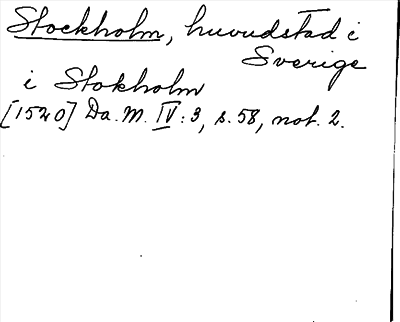 Stockholm, huvudstad i
Sverige
i Stokholm
[1520] Da. M. IV: 3, s. 58, not. 2.